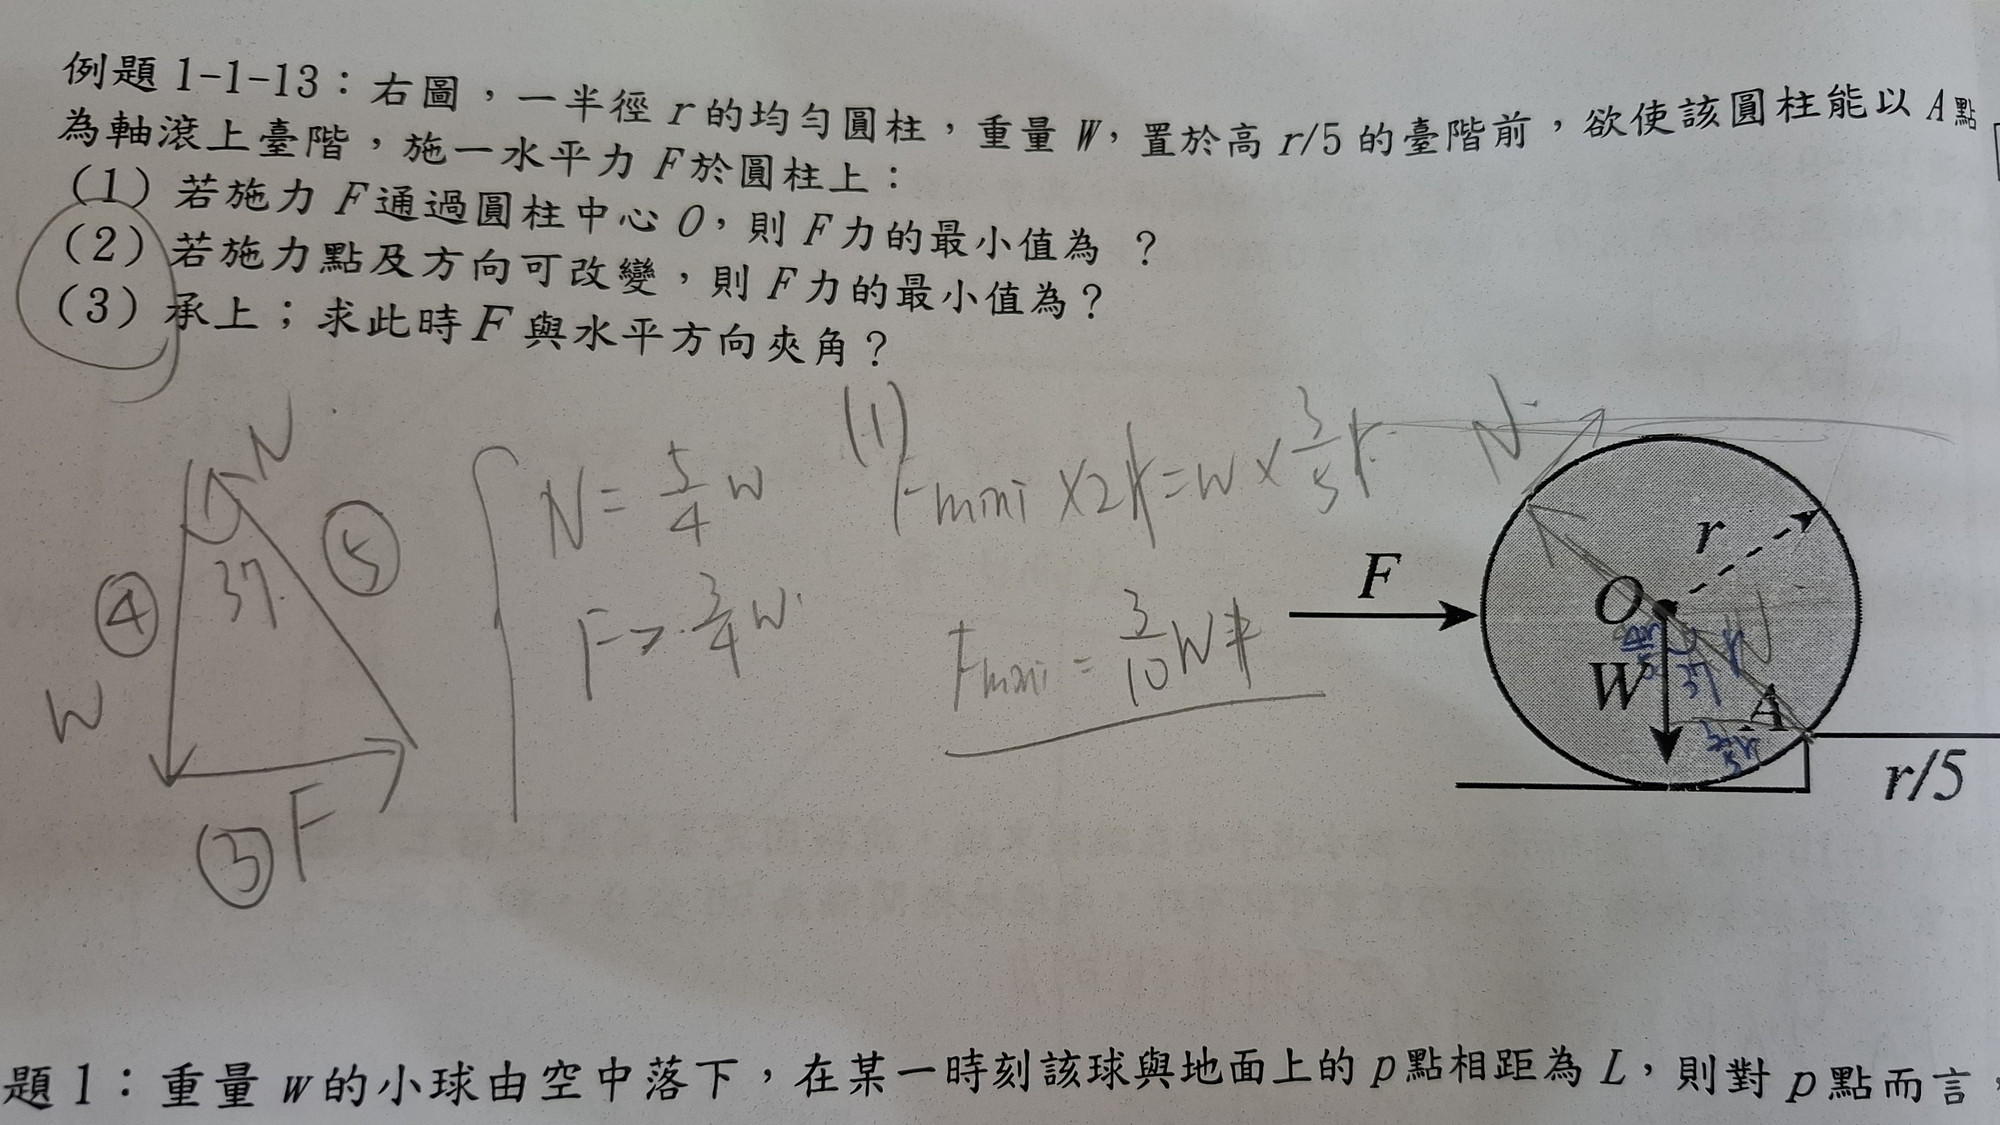 例題 1-1-13：右圖，一半徑 r 的均勻圓柱，重量 W，置於高 r/5 的臺階前，欲使該圓柱能以 A 點
為軸滾上臺階，施一水平力 F 於圓柱上：
(1) 若施力 F 通過圓柱中心 O，則 F 力的最小值為 ？
(2) 若施力點及方向可改變，則 F 力的最小值為？
(3) 承上；求此時 F 與水平方向夾角？
N
37
④
⑤
W
③
F
N = 5/4 w
F > 3/4 w
(1)
Fmini × 2r = w × 3/5 r
Fmini = 3/10 W
N
F
r
O
W
N
A
r/5
題 1：重量 w 的小球由空中落下，在某一時刻該球與地面上的 p 點相距為 L，則對 p 點而言，